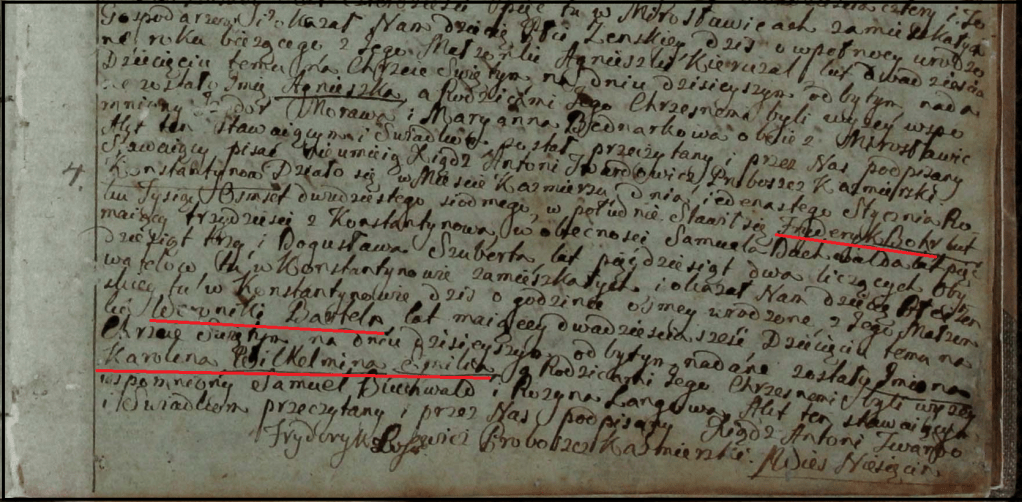 Gospodarzem i okazał Nam dziecię Płci Zenskiey dziś o wpołnocy urodzo
ne roku bieżącego z Jego Małżonki Agnieszki lat dwadzieścia
Dziecięciu temu na Chrzcie Swiętym na dniu dzisieyszym odbytym nada
ne zostało Imie Agnieszka a Rodzicami Jego Chrzesnemi byli wyżey wspo
mniony Morawa i Maryanna Bednarkowa oboie z Mirosławic
Akt ten stawaiącym i Swiadkom został przeczytany i przez Nas podpisany
Stawaiący pisać nieumieią Xiądz Antoni Twardowicz Proboszcz Kazmierski
4. Konstantynow Działo się w Mieście Kazmierzu dnia iedenastego Stycznia Ro-
ku Tysiąc Osmset dwudziestego siodmego, w południe Stawił się Fryderyk Lohr lat
maiący trzydzieści z Konstantynowa, w obecności Samuela Buchwalda lat pięć
dziesiąt trzy i Bogusława Szuberta lat pięćdziesiąt dwa liczących Oby
watelow tu w Konstantynowie zamieszkałych i okazał Nam dziecię Płci Zen
skiey tu w Konstantynowie dziś o godzinie osmey urodzone z Jego Małżon
ki Weroniki Barteln lat maiącey dwadzieścia sześć Dziecięciu temu na
Chrzcie Swiętym na dniu dzisieyszym odbytym nadane zostały Imiona
Karolena Wilhelmina Emilia a Rodzicami Jego Chrzesnemi byli wyżey
wspomniony Samuel Buchwald i Rozyna Langowa Akt ten stawaiącym
i Swiadkom przeczytany i przez Nas podpisany Xiądz Antoni Twardo
Fryderyk wicz Proboszcz Kazmierski.